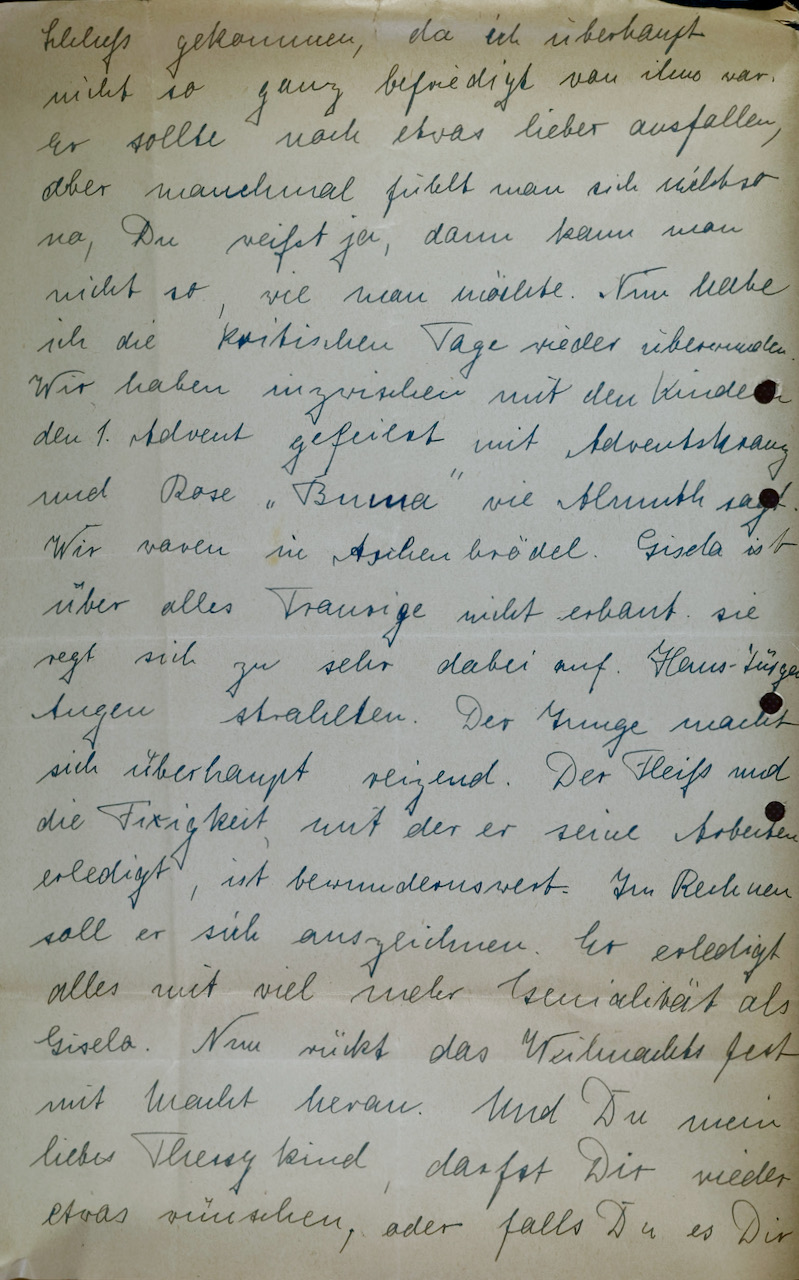 Schluß gekommen, da ich überhaupt
nicht so ganz befriedigt von ihm war.
Er sollte noch etwas lieber ausfallen,
aber manchmal fühlt man sich nicht so
na, Du weißt ja, dann kann man
nicht so, wie man möchte. Nun habe
ich die kritischen Tage wieder überwunden.
Wir haben inzwischen mit den Kindern
den 1. Advent gefeiert mit Adventskranz
und Rose „Buma" wie Almuth sagt.
Wir waren in Aschenbrödel. Gisela ist
über alles Traurige nicht erbaut. sie
regt sich zu sehr dabei auf. Hans-Jürgen
Augen strahlten. Der Junge macht
sich überhaupt reizend. Der Fleiß und
die Fixigkeit, mit der er seine Arbeiten
erledigt, ist bewundernswert. Im Rechnen
soll er sich auszeichnen. Er erledigt
alles mit viel mehr Genialität als
Gisela. Nun rückt das Weihnachtsfest
mit Macht heran. Und Du mein
liebes Thessykind, darfst Dir wieder
etwas wünschen, oder falls Du es Dir